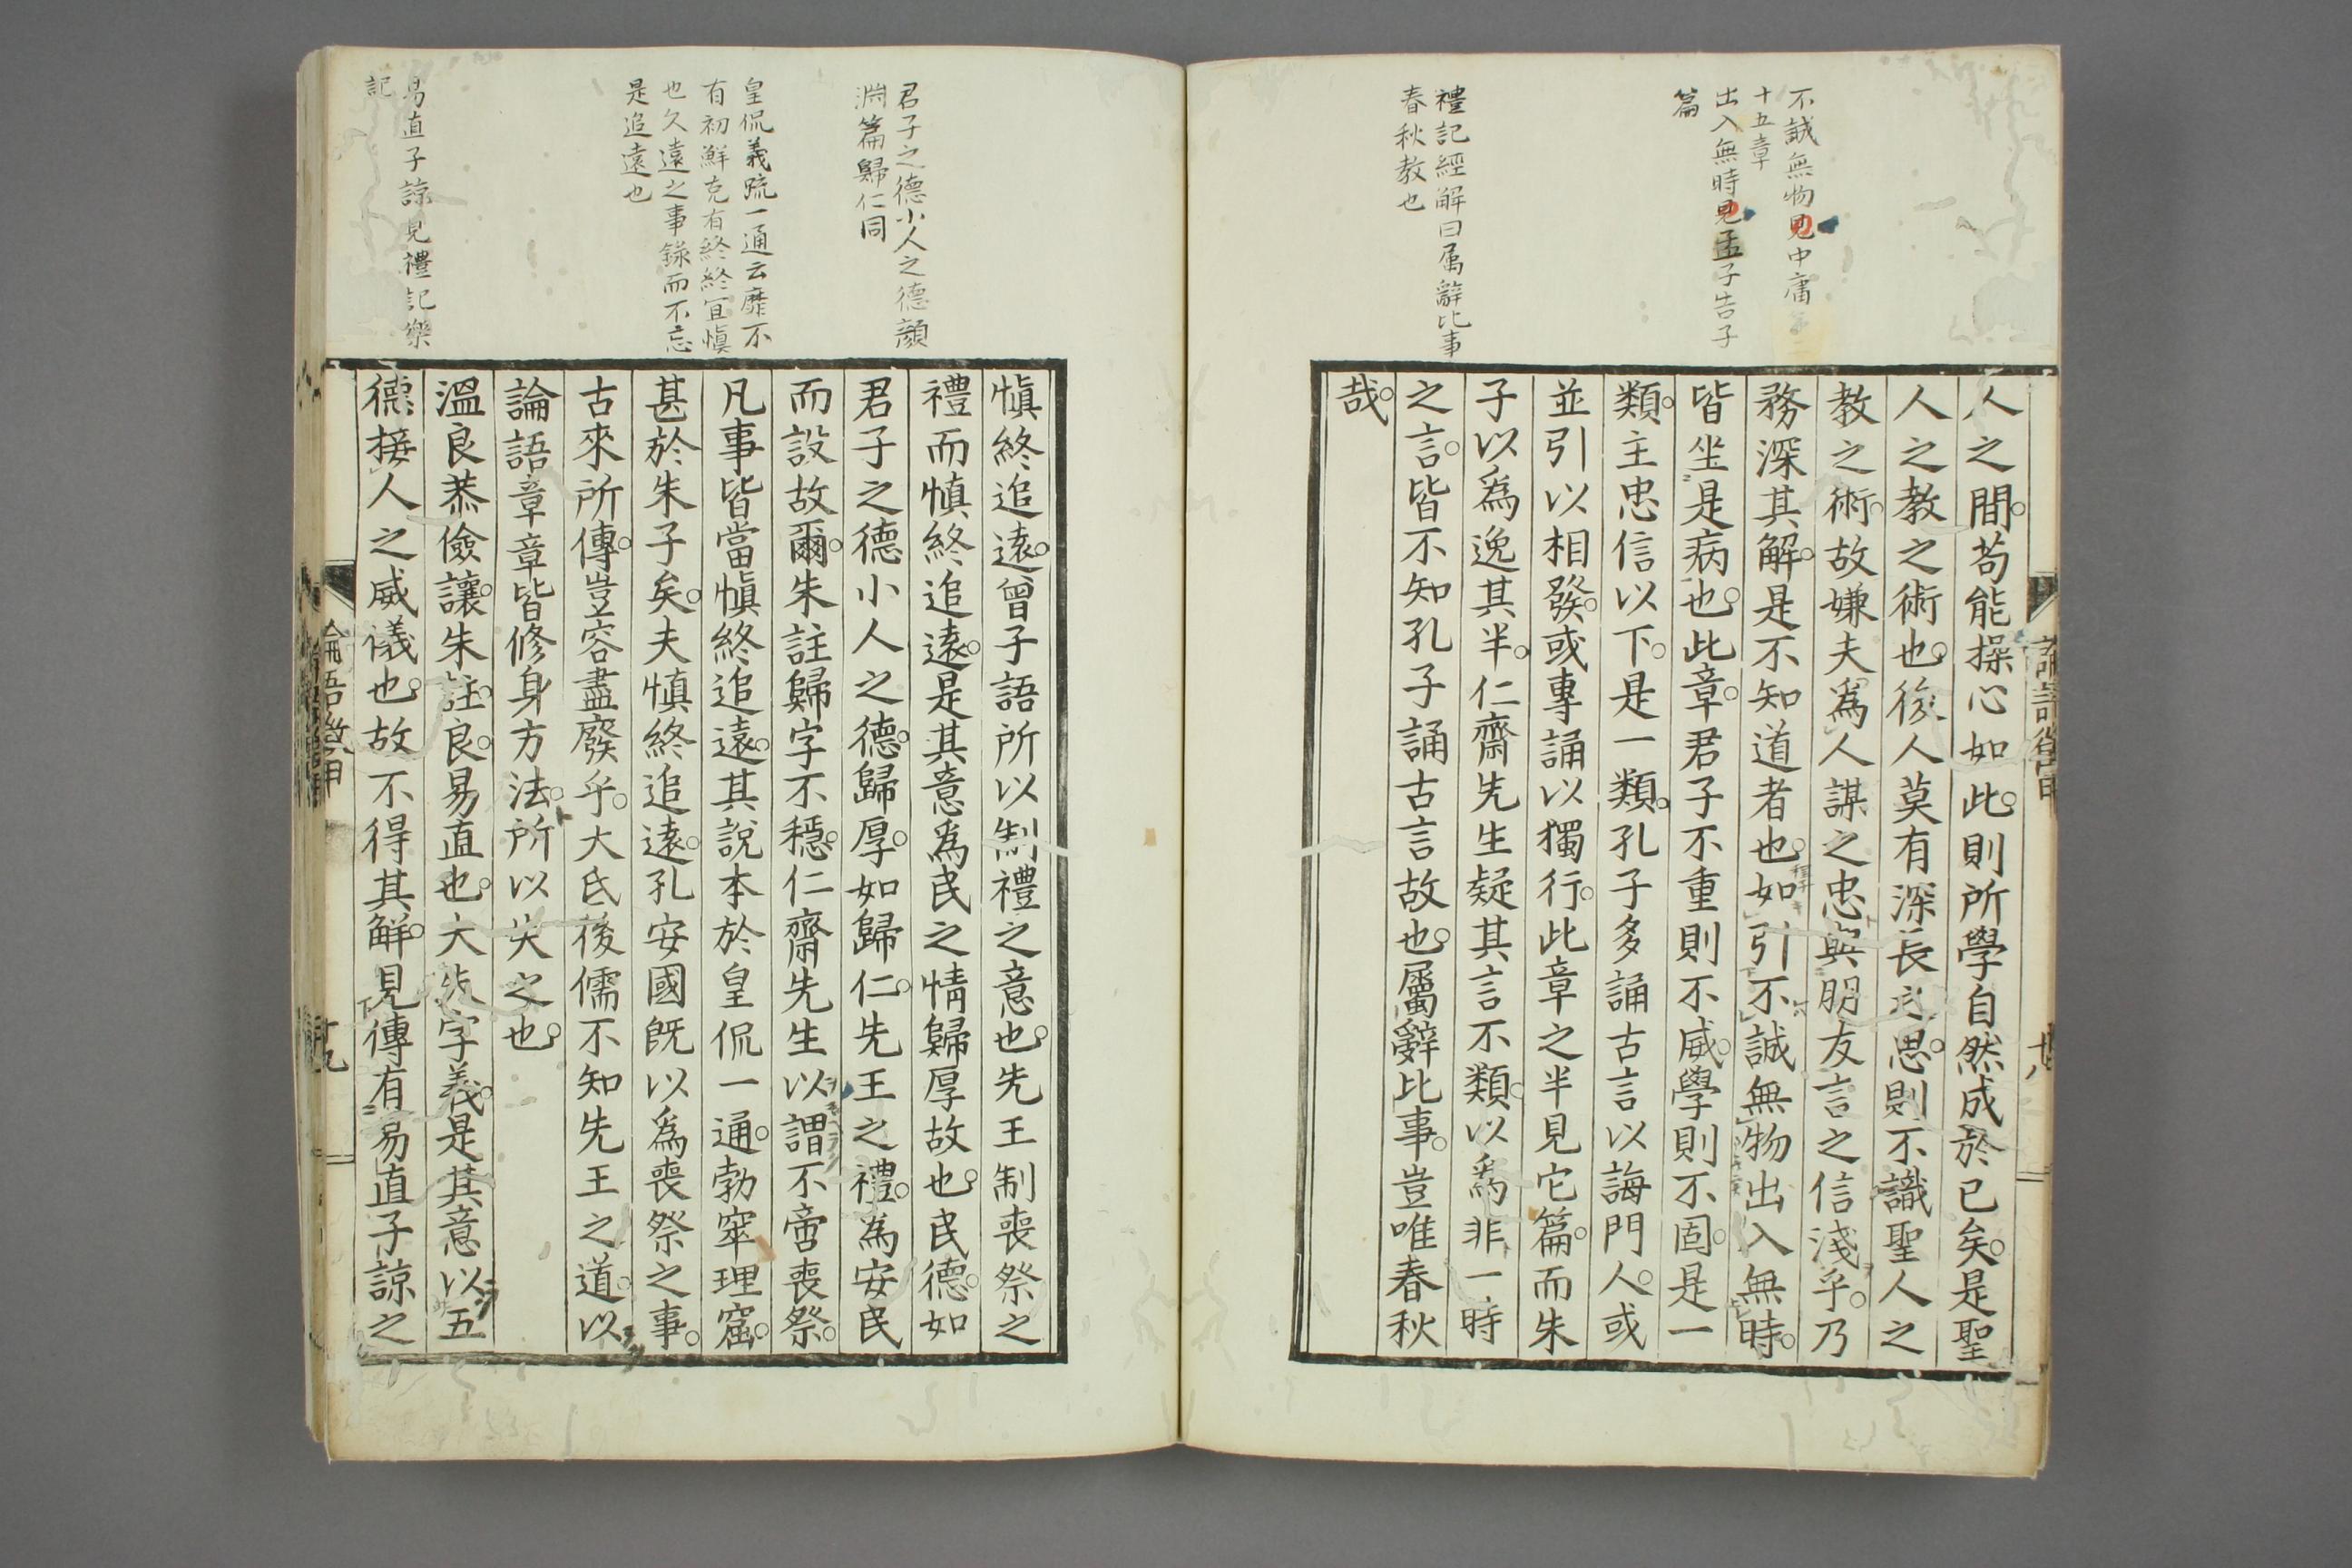 不誠無物見中庸
十五章
出入無時見孟子告子
篇
禮記經解曰属辭比事
春秋教也
人之間。苟能操心如此。則所學自然成於己矣。是聖
人之教之術也。後人莫有深長之思。則不識聖人之
教之術。故嫌夫爲人謀之忠與朋友言之信淺乎。乃
務深其解。是不知道者也。如引不誠無物出入無時。
皆坐是病也。此章。君子不重則不威。學則不固。是一
類。主忠信以下。是一類。孔子多誦古言以誨門人。或
並引以相發。或專誦以獨行。此章之半見它篇。而朱
子以爲逸其半。仁齋先生疑其言不類。以爲非一時
之言。皆不知孔子誦古言故也。屬辭比事。豈唯春秋
哉。
君子之德小人之德顔
淵篇歸仁同
皇侃義疏一通云靡不
有初鮮克有終終宜愼
也久遠之事錄而不忘
是追遠也
易直子諒見禮記樂
記
愼終追遠。曾子語所以制禮之意也。先王制喪祭之
禮而愼終追遠。是其意爲民之情歸厚故也。民德如
君子之德小人之德。歸厚。如歸仁。先王之禮。爲安民
而設故爾。朱註歸字不穩。仁齋先生以謂不啻喪祭。
凡事皆當愼終追遠。其說本於皇侃一通。勃窣理窟。
甚於朱子矣。夫愼終追遠。孔安國旣以爲喪祭之事。
古來所傳。豈容盡廢乎。大氐後儒不知先王之道。以
論語章章皆修身方法。所以失之也。
溫良恭儉讓。朱註。良。易直也。大失字義。是其意以五
德接人之威儀也。故不得其解。見傳有易直子諒之
論語徵甲
十九